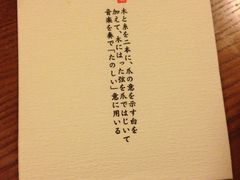 木と糸を二本に、爪の意を示す白を
加えて、木にはった弦を爪ではじいて
音楽を奏で「たのしい」意に用いる